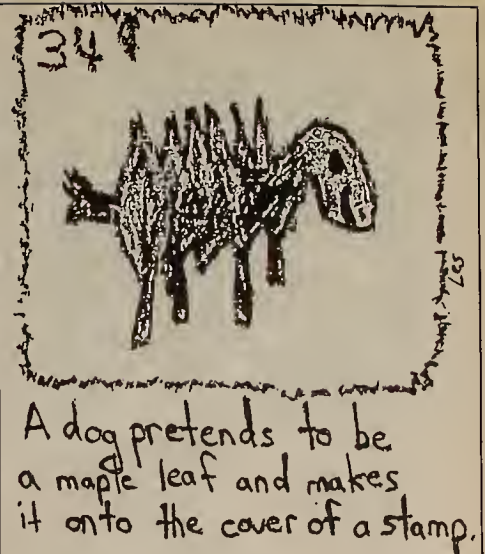 34¢
A dog pretends to be
a maple leaf and makes
it onto the cover of a stamp.